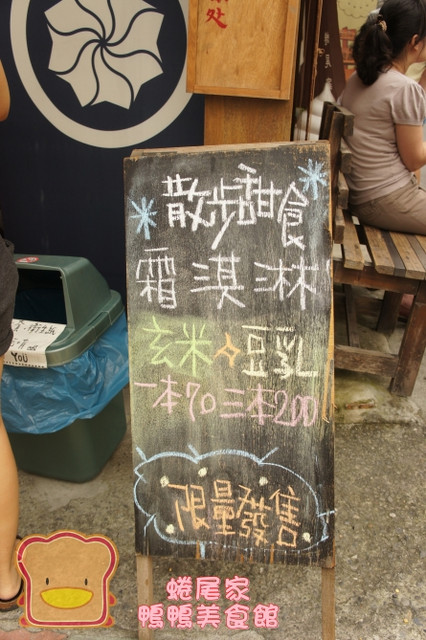 處
散步甜食
霜淇淋
玄米 豆乳
一本70三本200
限量發售
YOU
蜷尾家
鴨鴨美食館